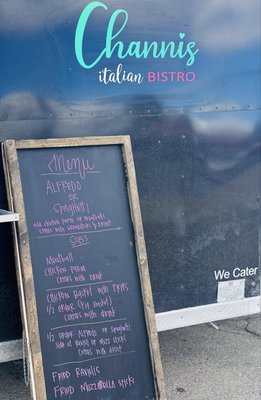 Channis
italian BISTRO
Menu
ALFREDO
OR
SPAGHETTI
Add chicken parm or meatballs
comes with breadsticks & drink
SUBS
Meatball
Chicken Parm
comes with drink
Chicken Basket with Fries
1/2 order (kid basket)
comes with drink
1/2 order Alfredo or Spaghetti
side of ravioli or mozz sticks
comes with drink
Fried Raviolis
Fried Mozzarella Sticks
We Cater